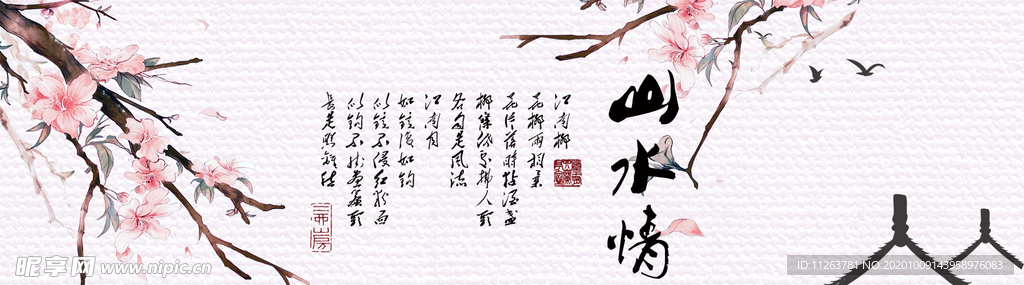 山水情
江南柳
花柳兩相柔
花片落時黏酒盞
柳條低處拂人頭
各自是風流
江南月
如鏡復如鉤
似鏡不侵紅粉面
似鉤不挂畫簾頭
長是照離愁
昵享网 www.nipic.cn
ID:11263781 NO:20201009143958976083